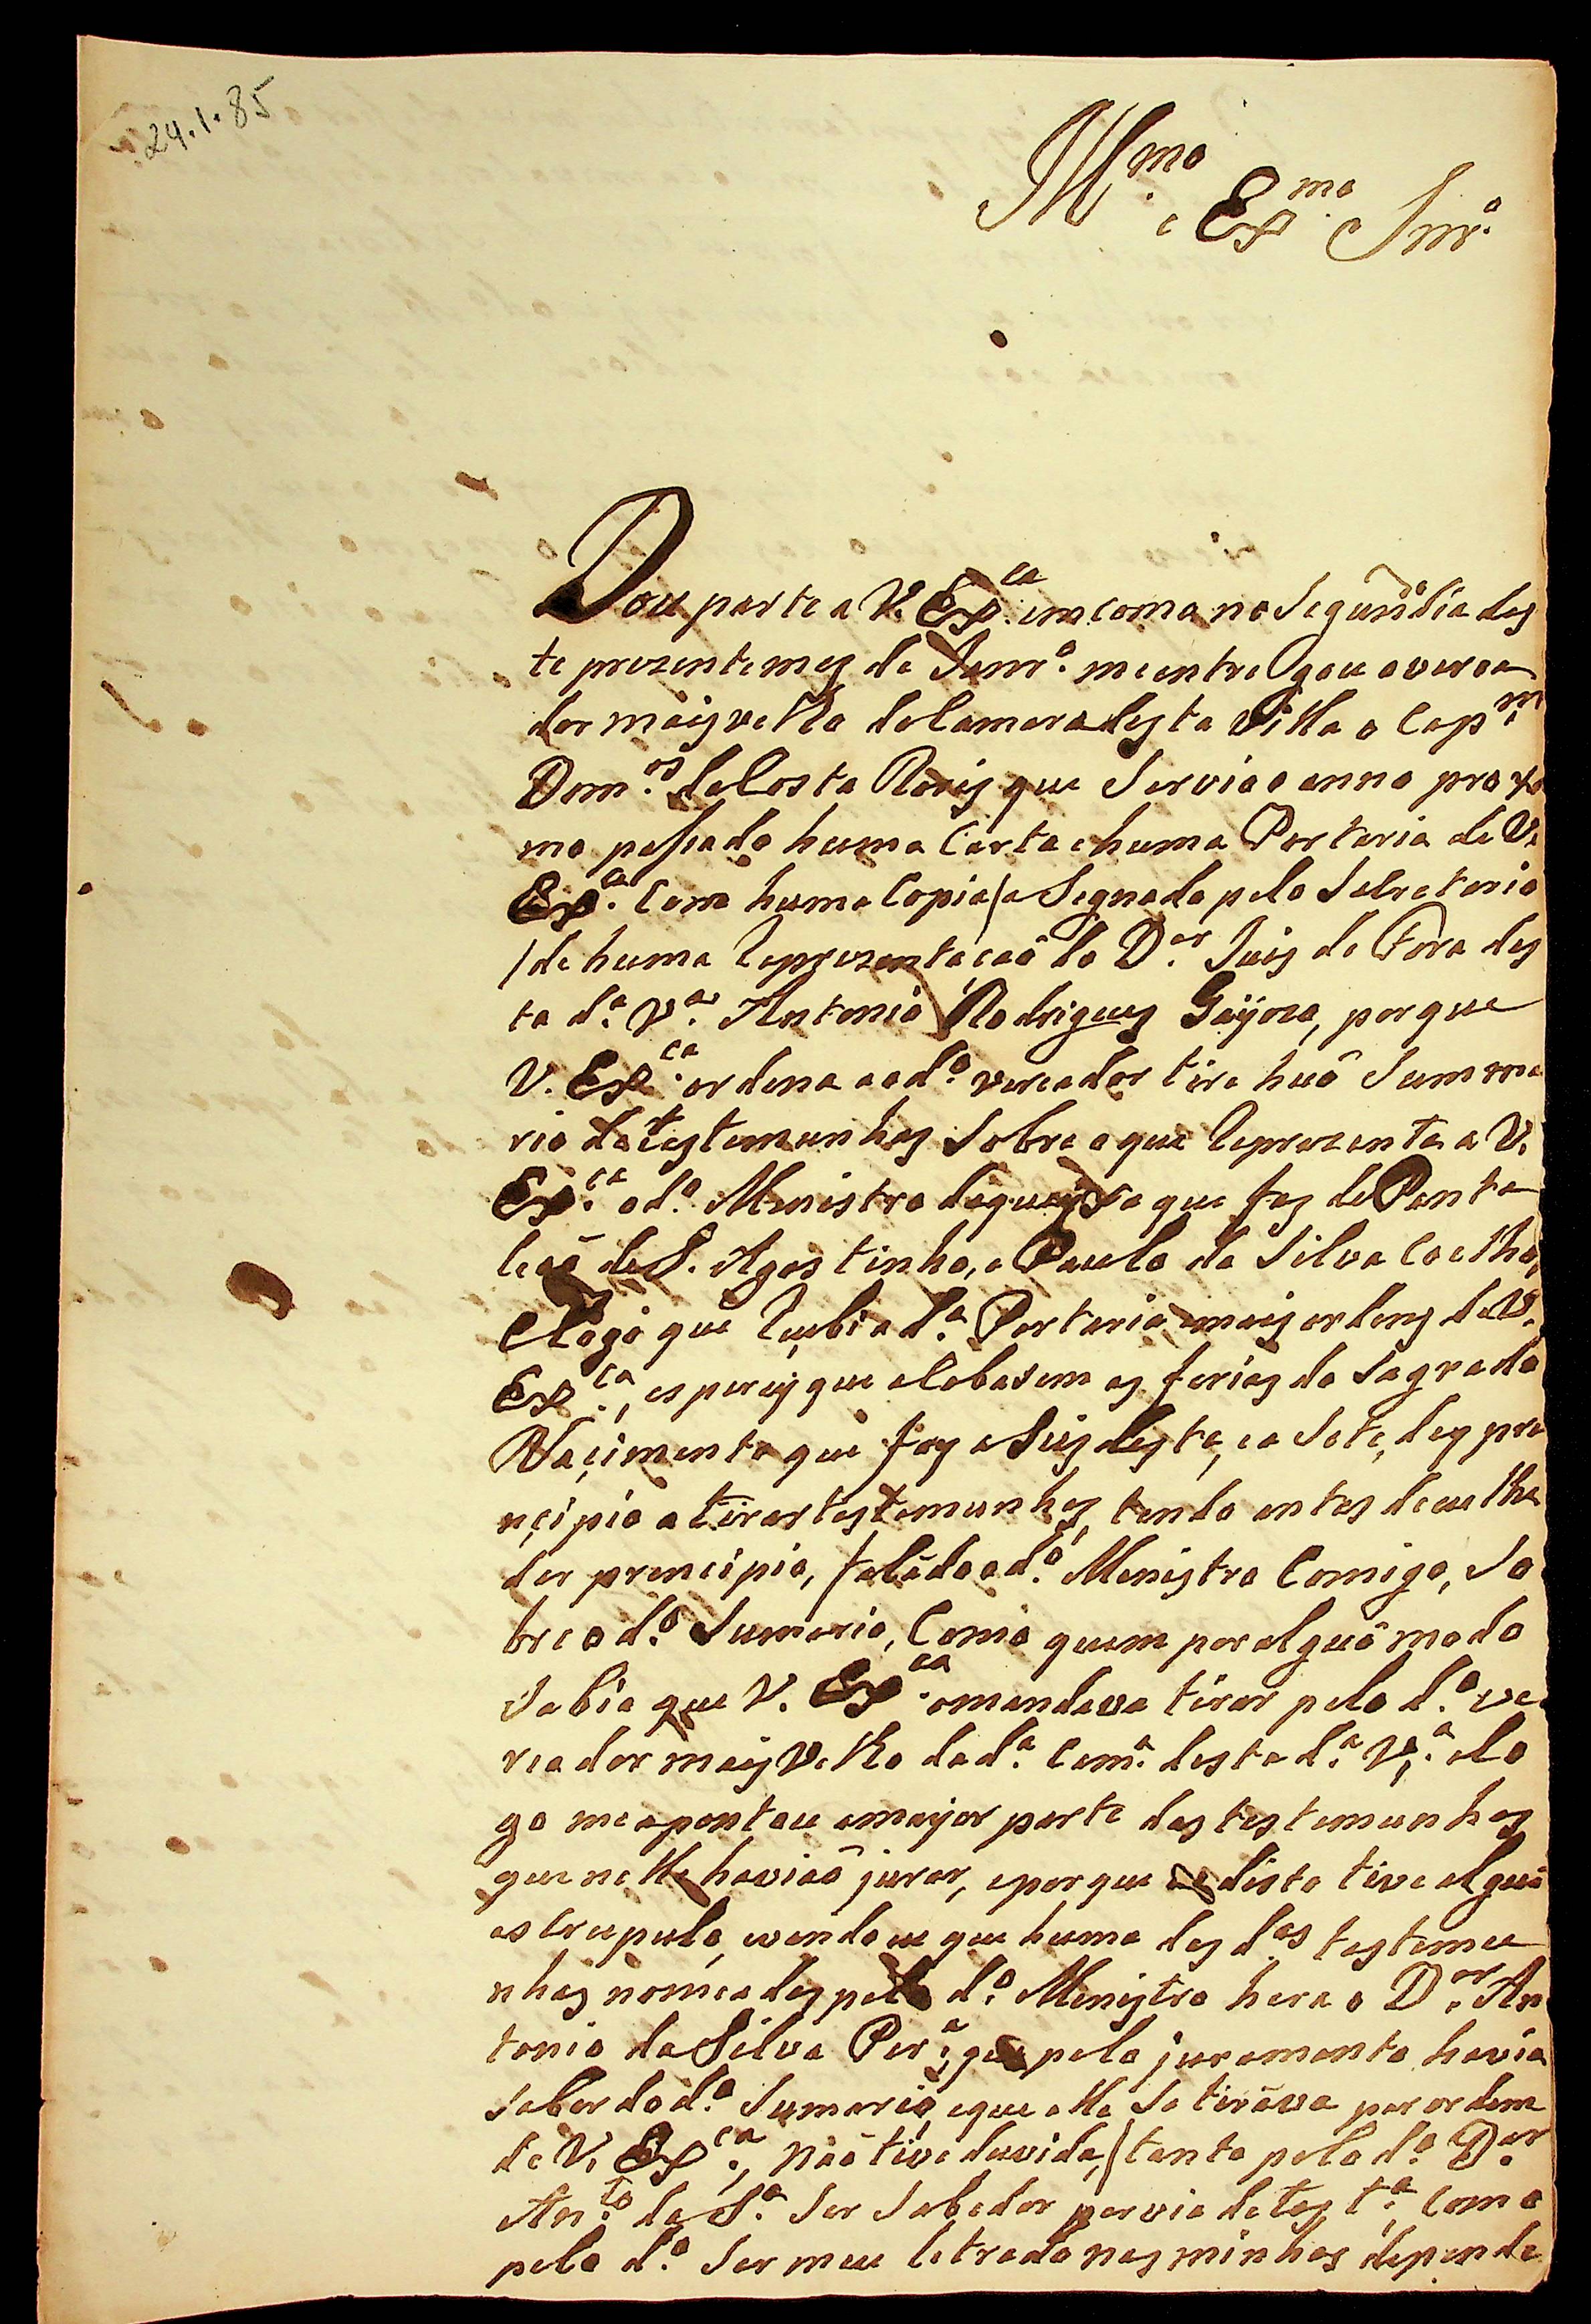 24.1.85
Illmo. e Exmo. Snr.o
Dou parte a V. Exca. em como no segũ.do dia des
te prezente mes de Janr.o me entregou o verea
dor mais velho da Camera desta Villa o Cap.m
Dom.os da Costa Roris que servio o anno proxi
mo passado huma Carta e huma Portaria de V.
Exca. Com huma Copia / a Segnada pelo Secretario
/ de huma Reprezentacaõ do D.or Juis de Fora des
ta d.a V.a Antonio Rodrigues Gayozo, porque
V. Exca. ordena ao d.o vereador tire huõ Summa
rio de testemunhas Sobre o que Reprezenta a V.
Exca. o d.o Menistro daqueixa que fas de Panta
leaõ de S. Agostinho, e Paulo da Silva Coelho,
e logo que Recebi a d.a Portaria e mais ordens de V.
Exca., esperey que acabasem as ferias do Sagrado
Nacimento que foy a Seis deste, e a Sete, dey pre
ncipio a tirar testemunhas, tendo antes de eu lhe
dar principio, falado o d.o Menistro Comigo, So
bre o d.o Sumario, Como quem por alguõ modo
Sabia que V. Exca. o mandava tirar pelo d.o ve
reador mais Velho da d.a Cam.a desta d.a V.a e lo
go me apontou a mayor parte das testemunhas
que nelle haviaõ jurar, e porque disto tive alguõ
escrupulo, vendo eu que huma das d.as testemu
nhas nomeadas pello d.o Menistro hera o D.or An
tonio da Silva Per.a, que pelo juramento havia
Saber do d.o Sumario, e que elle Se tirava por ordem
de V. Exca., naõ tive duvida, / tanto pelo d.o D.or
An.to da S.a Ser Sabedor por via de test.a, Como
pelo d.o Ser meu letrado nas minhas depende